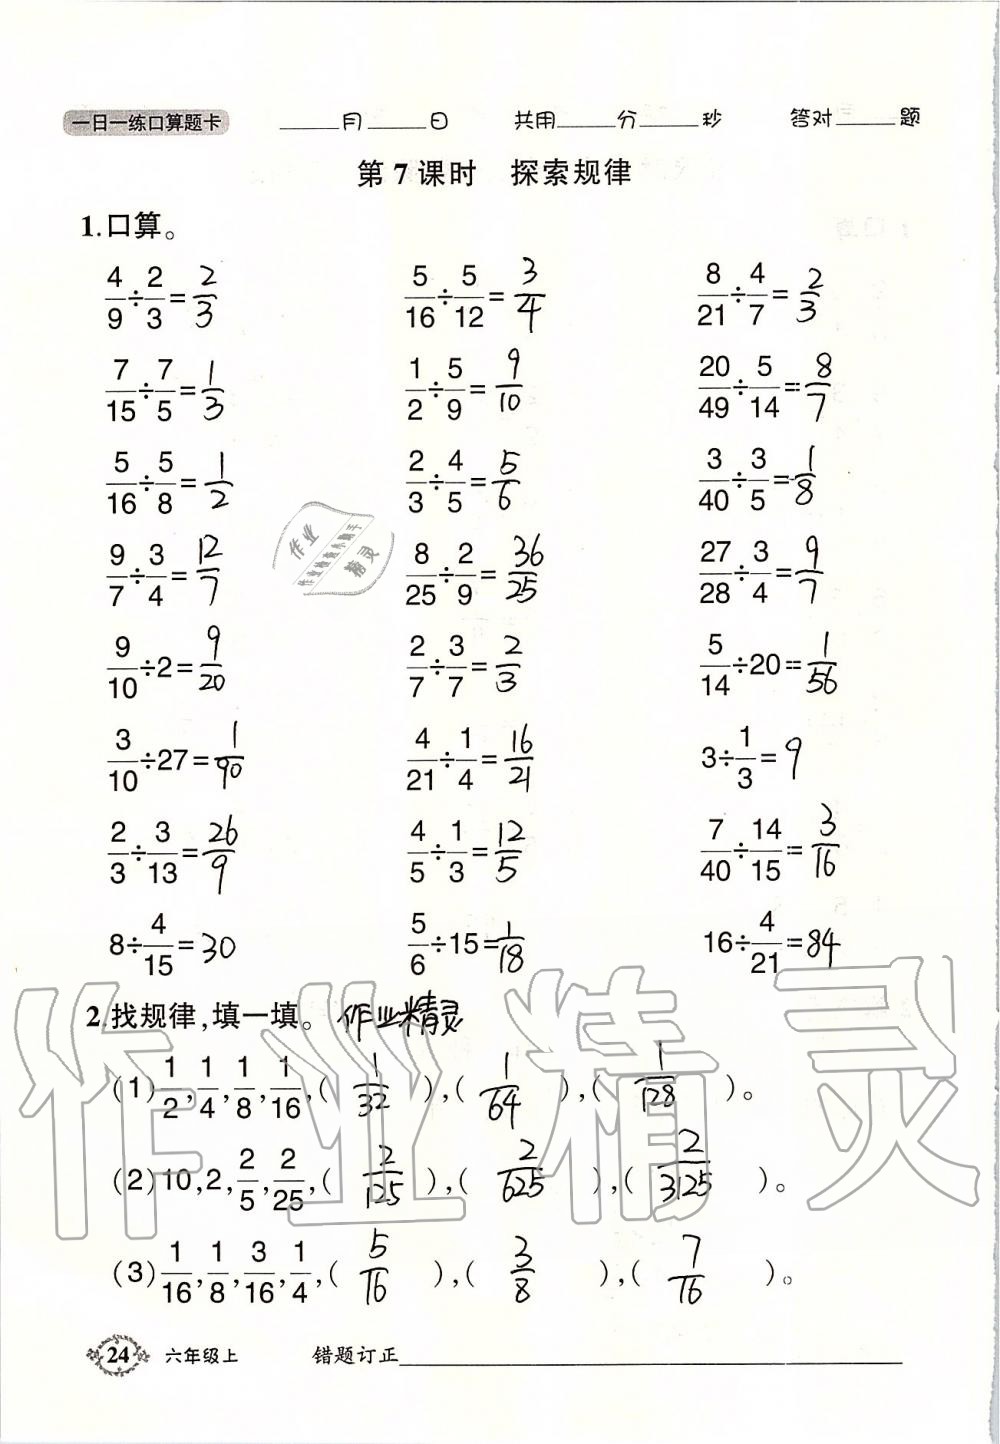 一日一练口算题卡 ____月____日 共用____分____秒 答对____题
第7课时 探索规律
1.口算。
4/9÷2/3=2/3 5/16÷5/12=3/4 8/21÷4/7=2/3
7/15÷7/5=1/3 1/2÷5/9=9/10 20/49÷5/14=8/7
5/16÷5/8=1/2 2/3÷4/5=5/6 3/40÷3/5=1/8
9/7÷3/4=12/7 8/25÷2/9=36/25 27/28÷3/4=9/7
9/10÷2=9/20 2/7÷3/7=2/3 5/14÷20=1/56
3/10÷27=1/90 4/21÷1/4=16/21 3÷1/3=9
2/3÷3/13=26/9 4/5÷1/3=12/5 7/40÷14/15=3/16
8÷4/15=30 5/6÷15=1/18 16÷4/21=84
2.找规律,填一填。 作业精灵
(1)1/2,1/4,1/8,1/16,( 1/32 ),( 1/64 ),( 1/128 )。
(2)10,2,2/5,2/25,( 2/125 ),( 2/625 ),( 2/3125 )。
(3)1/16,1/8,3/16,1/4,( 5/16 ),( 3/8 ),( 7/16 )。
24 六年级上 错题订正____
作业
作业检查小助手
精灵
作业精灵